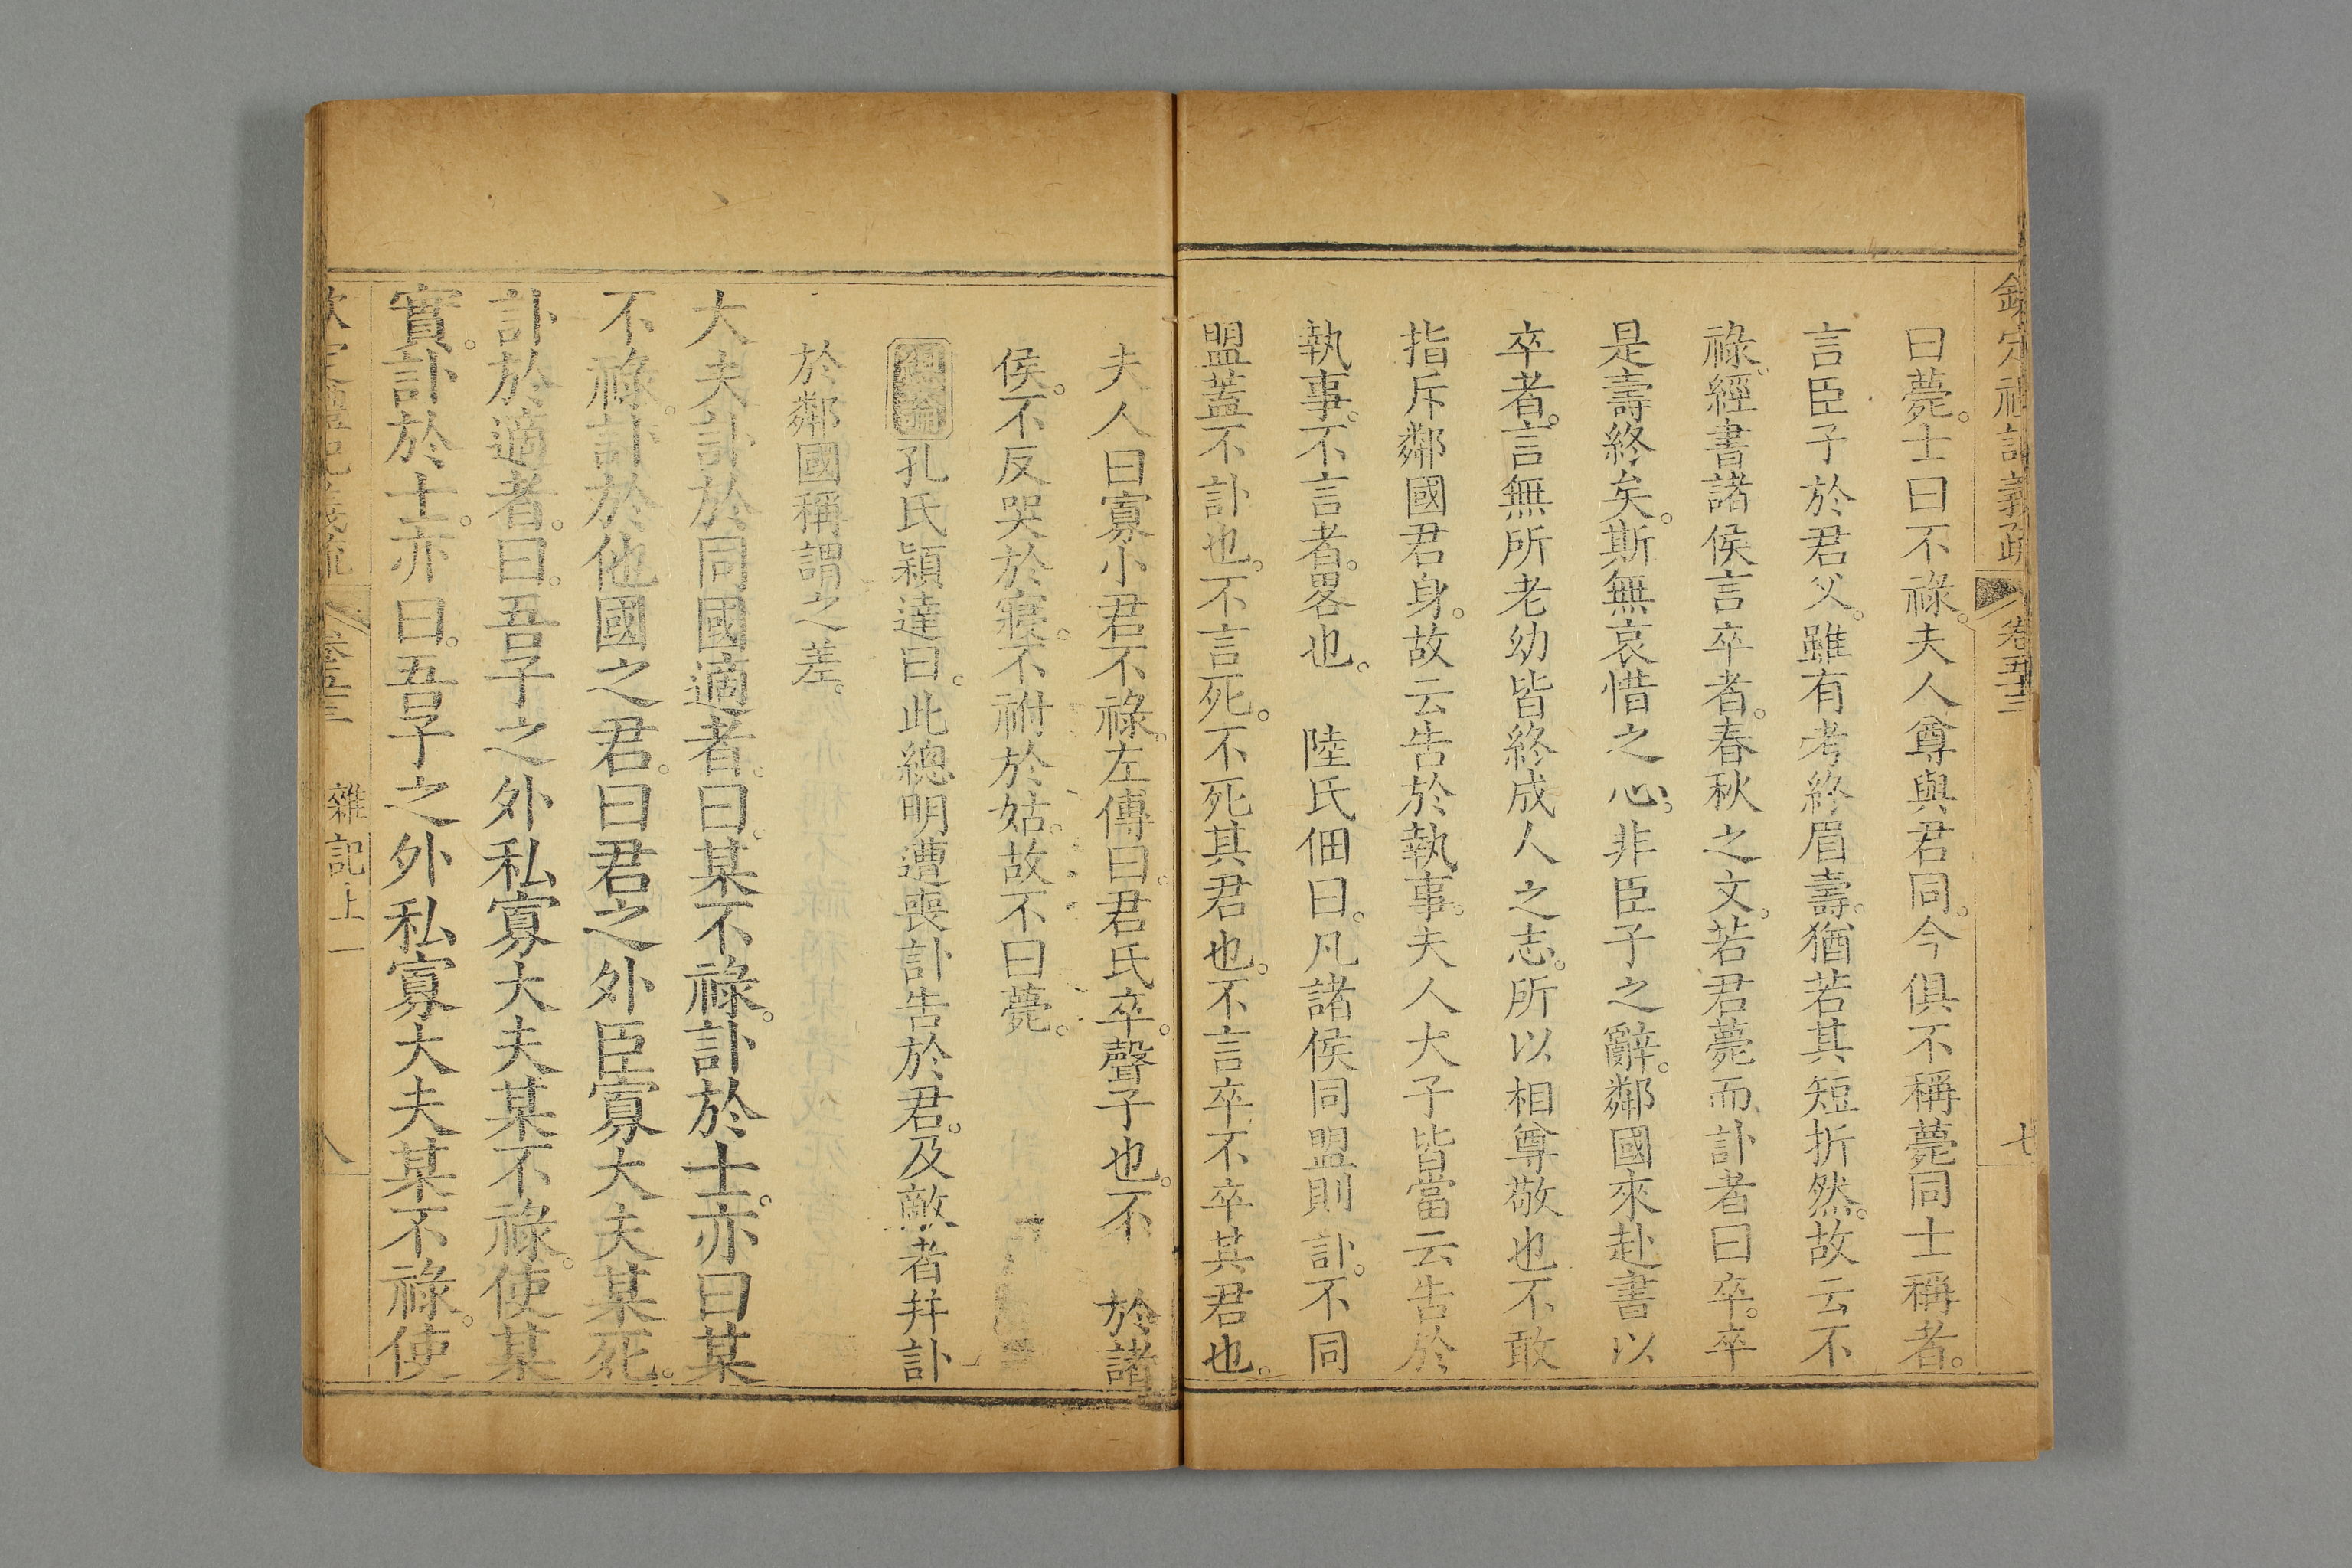 欽定禮記義疏 卷五十三 七
曰薨。士曰不祿。夫人尊與君同。今俱不稱薨同士稱者。
言臣子於君父。雖有考終眉壽。猶若其短折然。故云不
祿。經書諸侯言卒者。春秋之文。若君薨而訃者曰卒。卒
是壽終矣。斯無哀惜之心。非臣子之辭。鄰國來赴書以
卒者。言無所老幼皆終成人之志。所以相尊敬也不敢
指斥鄰國君身。故云告於執事。夫人大子皆當云告於
執事。不言者。畧也。 陸氏佃曰。凡諸侯同盟則訃。不同
盟蓋不訃也。不言死。不死其君也。不言卒不卒其君也。
夫人曰寡小君不祿。左傳曰。君氏卒。聲子也。不 於諸
侯。不反哭於寢。不祔於姑。故不曰薨。
總論孔氏穎達曰。此總明遭喪訃告於君。及敵者幷訃
於鄰國稱謂之差。
大夫訃於同國適者。曰。某不祿。訃於士。亦曰某
不祿。訃於他國之君。曰君之外臣寡大夫某死。
訃於適者。曰。吾子之外私寡大夫某不祿。使某
實。訃於士。亦曰。吾子之外私寡大夫某不祿。使
欽定禮記義疏 卷五十三 雜記上一 八